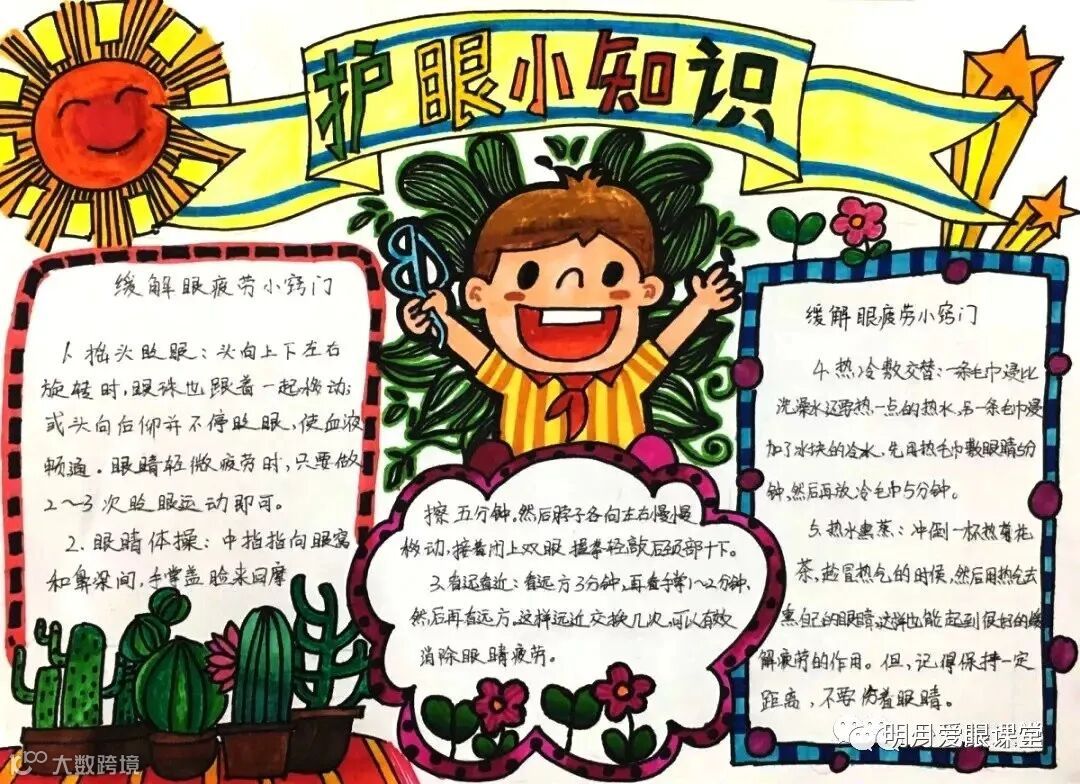 护眼小知识
缓解眼疲劳小窍门
1. 摇头眨眼：头向上下左右
旋转时，眼珠也跟着一起移动；
或头向后仰并不停眨眼，使血液
畅通。眼睛轻微疲劳时，只要做
2～3次眨眼运动即可。
2. 眼睛体操：中指指向眼窝
和鼻梁间，手掌盖脸来回摩
擦五分钟。然后脖子各向左右慢慢
移动，接着闭上双眼，握拳轻敲后颈部十下。
3.看远看近：看远方3分钟，再看手掌1～2分钟，
然后再看远方。这样远近交换几次，可以有效
消除眼睛疲劳。
缓解眼疲劳小窍门
4.热冷敷交替：一条毛巾浸比
洗澡水还要热一点的热水，另一条毛巾浸
加了冰块的冷水，先用热毛巾敷眼睛5分
钟，然后再放冷毛巾5分钟。
5.热水熏蒸：冲倒一杯热菊花
茶，趁冒热气的时候，然后用热气去
熏自己的眼睛，这样也能起到很好的缓
解疲劳的作用。但，记得保持一定
距离，不要伤着眼睛。
明月爱眼课堂
大数跨境